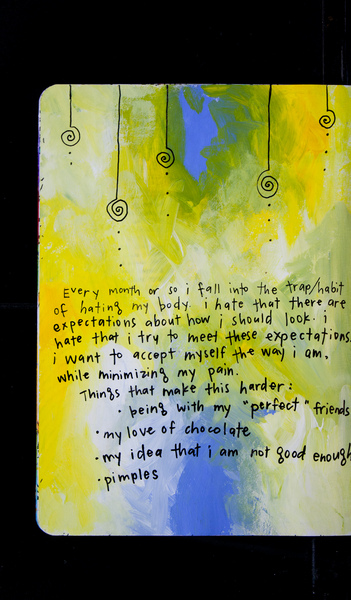 Every month or so i fall into the trap/habit
of hating my body. i hate that there are
expectations about how i should look. i
hate that i try to meet these expectations.
i want to accept myself the way i am,
while minimizing my pain.
Things that make this harder:
· being with my "perfect" friends
· my love of chocolate
· my idea that i am not good enough
· pimples